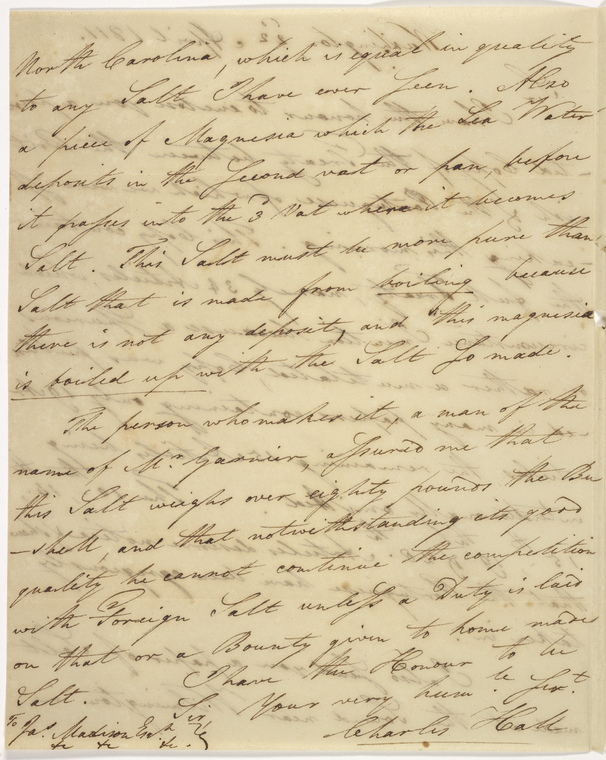 North Carolina, which is equal in quality
to any Salt I have ever seen. Also
a piece of Magnesia which the Sea Water
deposits in the Second vat or pan before
it passes into the 3 Vat where it becomes
Salt. This Salt must be more pure than
Salt that is made from boiling because
there is not any deposit, and this magnesia
is boiled up with the Salt so made.
The person who makes it, a man of the
name of Mr. Garnier, assured me that
this Salt weighs over eighty pounds the Bu
-shell, and that notwithstanding its good
quality he cannot continue the competition
with Foreign Salt unless a Duty is laid
on that or a Bounty given to home made
Salt. I have the Honour to be
Sir Your very hum.le Ser.t
To Jas. Madison Esq.
&c &c &c.
Charles Hall